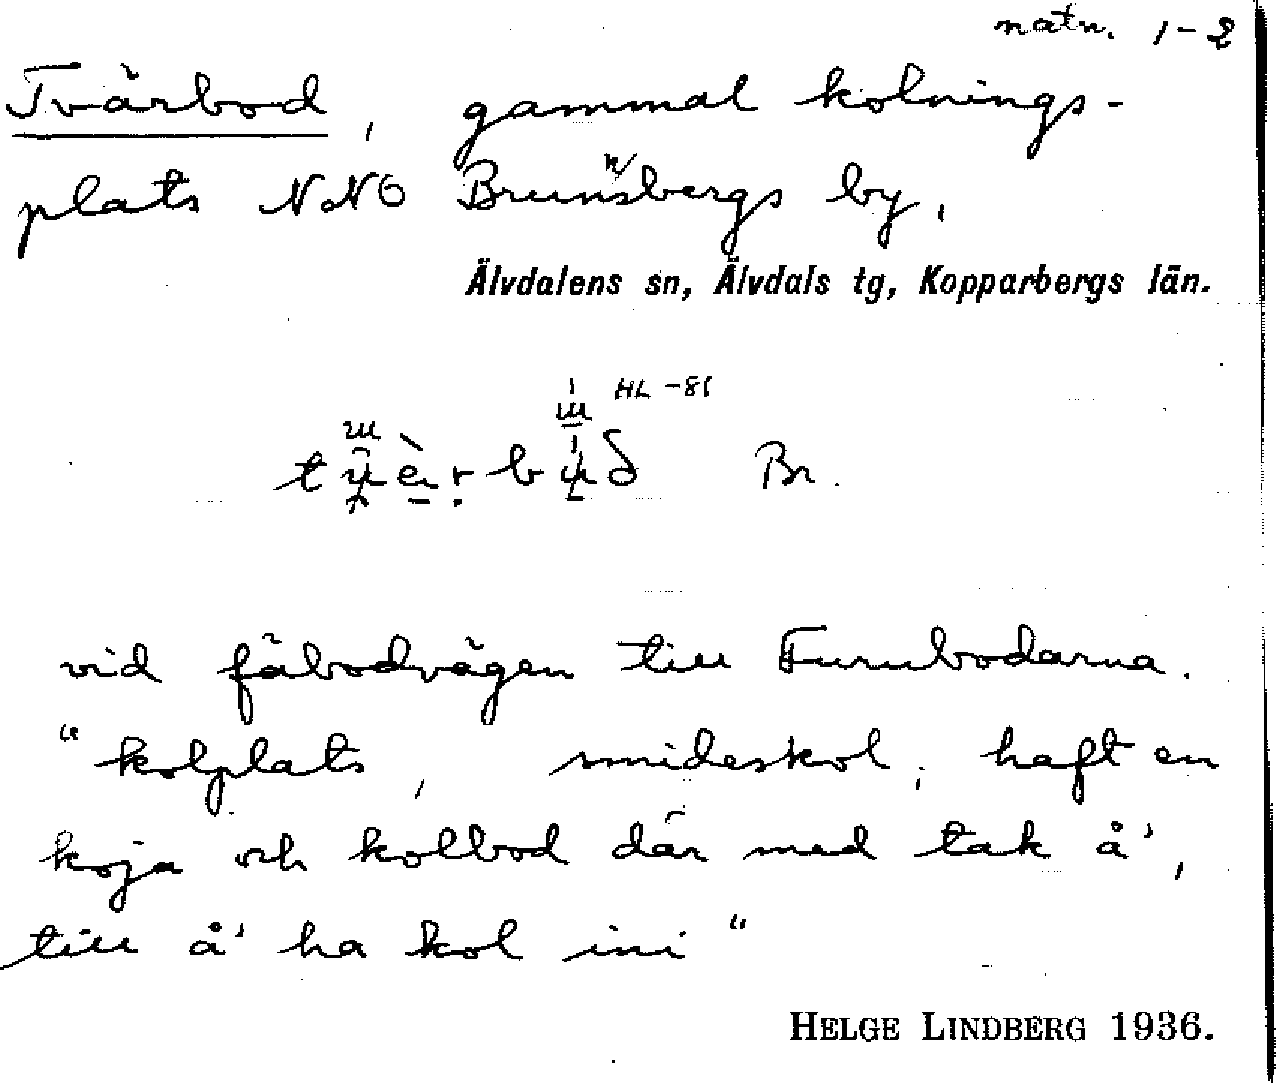 natn. 1-2
Tvärbod, gammal kolnings-
plats NNO Brunnsbergs by,
Älvdalens sn, Älvdals tg, Kopparbergs län.
HL -81
Br.
vid fäbodvägen till Furubodarna.
"kolplats, smideskol, haft en
koja och kolbod där med tak å',
till å' ha kol ini"
HELGE LINDBERG 1936.